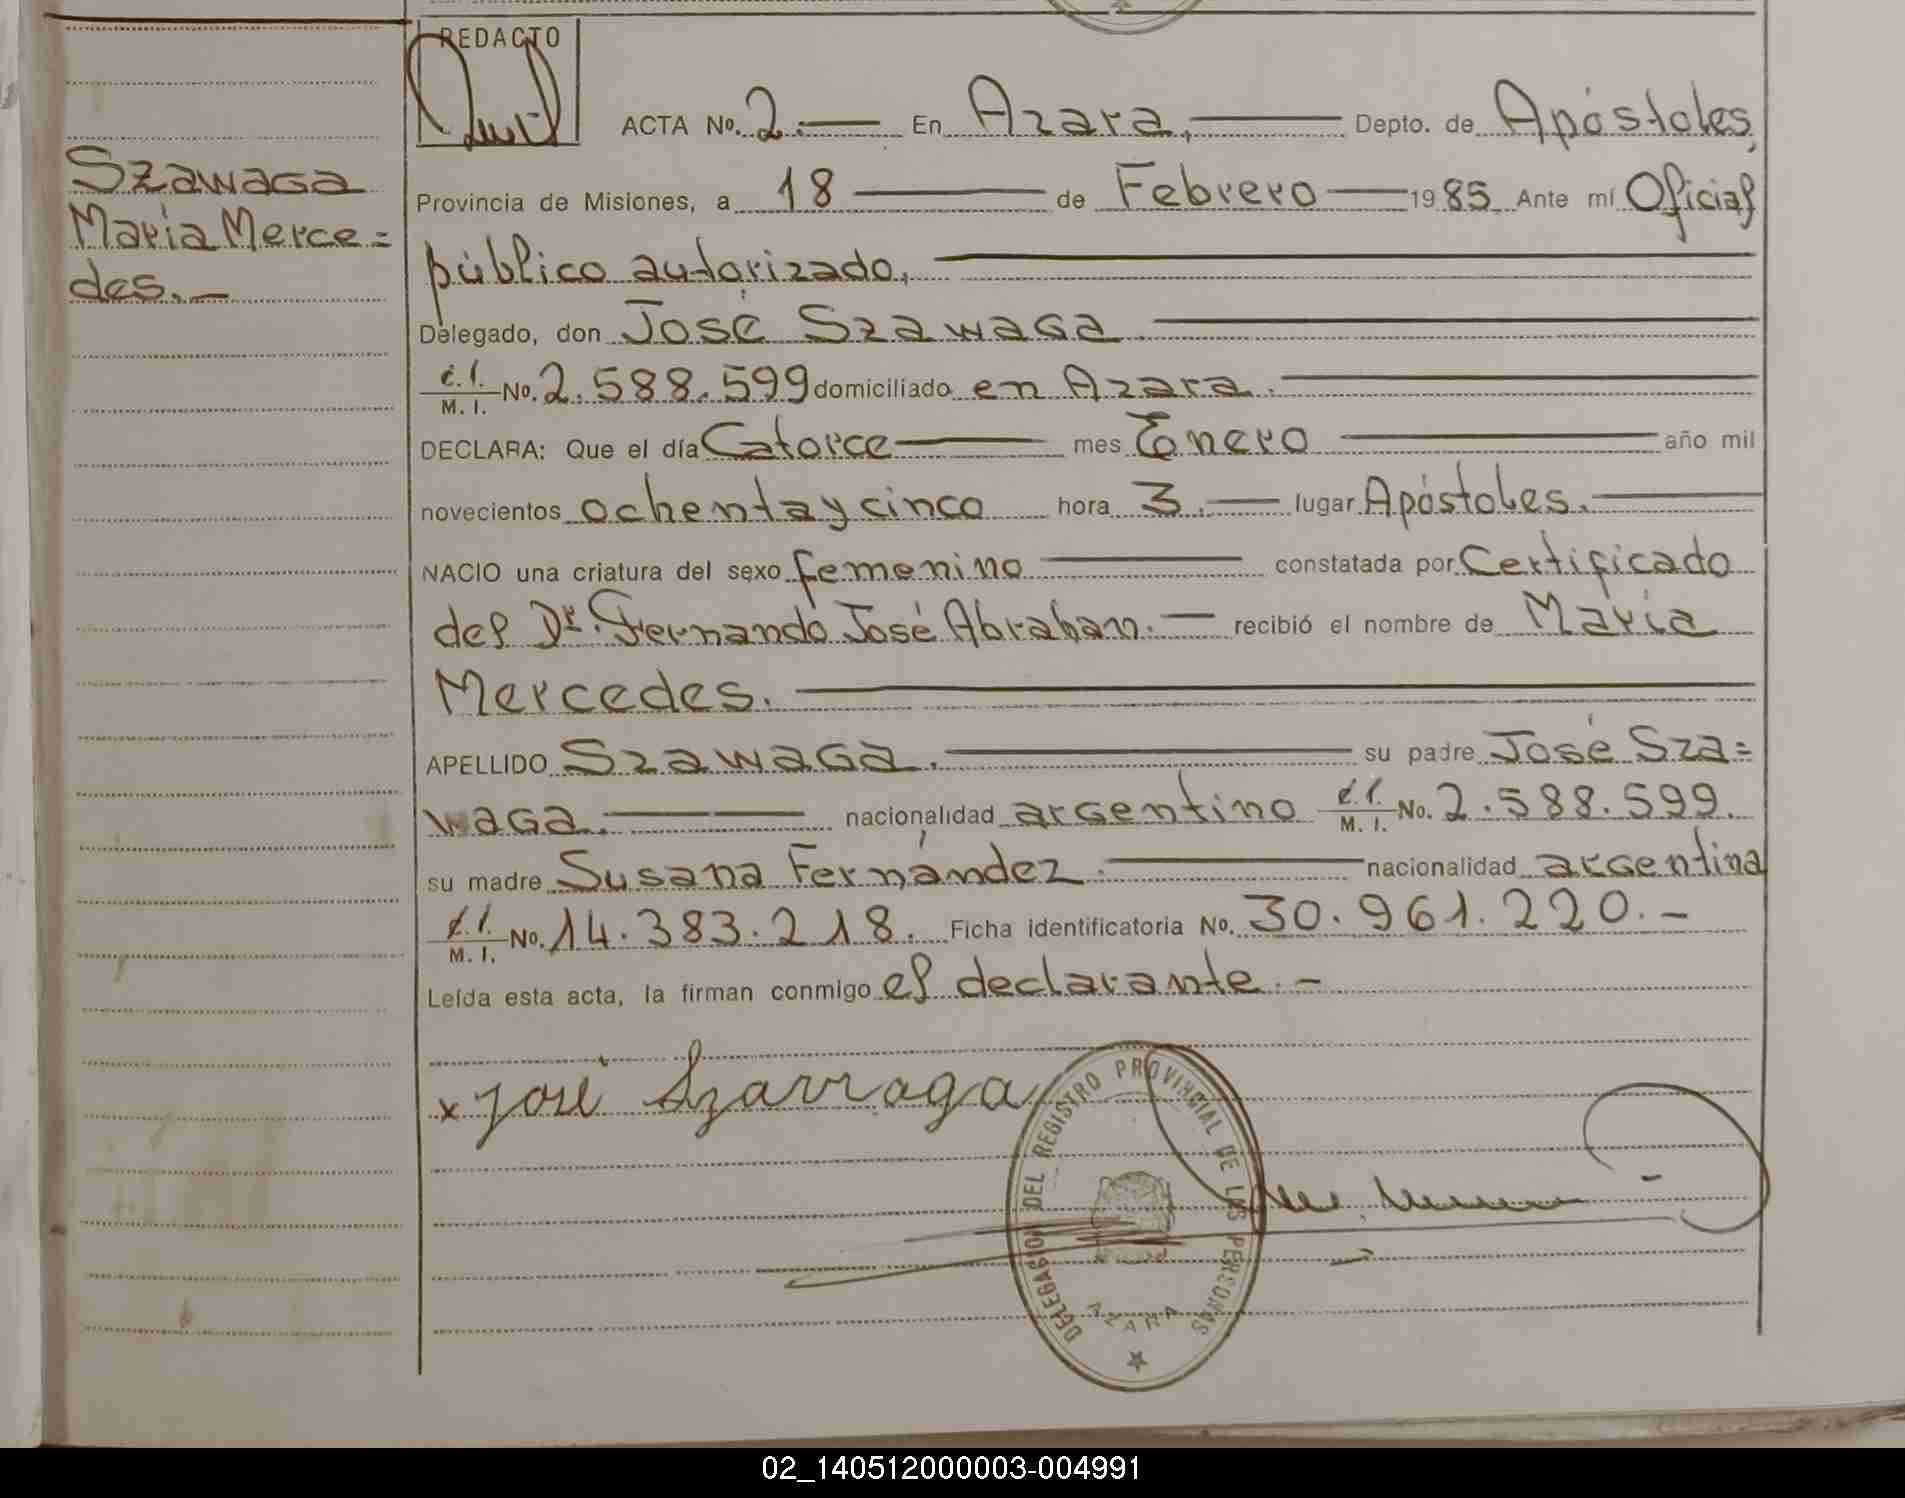 REDACTO
ACTA No. 2.— En Azara,— Depto. de Apóstoles,
Szawaga
María Merce=
des.—
Provincia de Misiones, a 18 — de Febrero — 1985 Ante mí Oficial
público autorizado,—
Delegado, don José Szawaga —
C.I. No. 2.588.599 domiciliado en Azara.—
M. I.
DECLARA: Que el día Catorce — mes Enero — año mil
novecientos ochenta y cinco hora 3.— lugar Apóstoles.—
NACIO una criatura del sexo femenino — constatada por Certificado
del Dr. Fernando José Abraham.— recibió el nombre de María
Mercedes.—
APELLIDO Szawaga.— su padre José Sza=
waga.— nacionalidad argentino C.I. No. 2.588.599.
M. I.
su madre Susana Fernández.— nacionalidad argentina
C.I. No. 14.383.218. Ficha identificatoria No. 30.961.220.—
M. I.
Leída esta acta, la firman conmigo el declarante.—
x José Szawaga
DELEGACION DEL REGISTRO PROVINCIAL DE LAS PERSONAS
AZARA
02_140512000003-004991